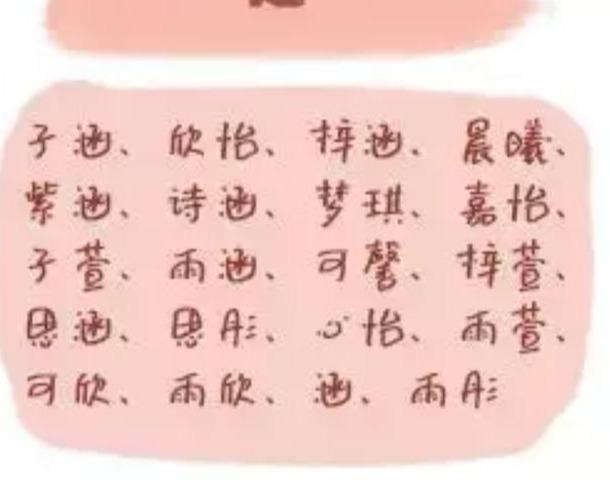 子涵、欣怡、梓涵、晨曦、
紫涵、诗涵、梦琪、嘉怡、
子萱、雨涵、可馨、梓萱、
思涵、思彤、心怡、雨萱、
可欣、雨欣、涵、雨彤